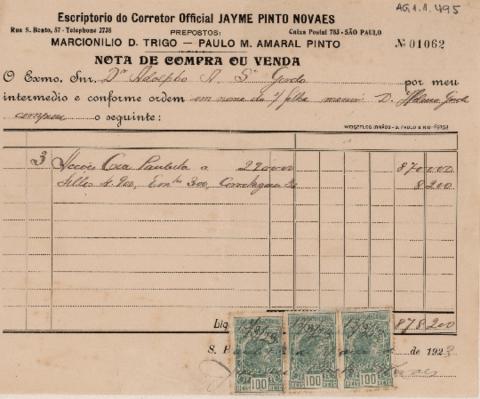 AG.1.1.495
Escriptorio do Corretor Official JAYME PINTO NOVAES
Rua S. Bento, 57 - Telephone 2738
Caixa Postal 783 - SÃO PAULO
PREPOSTOS:
MARCIONILIO D. TRIGO — PAULO M. AMARAL PINTO
№ 01062
NOTA DE COMPRA OU VENDA
O Exmo. Snr. Dr Adolpho A. Sa Gordo por meu
intermedio e conforme ordem em nome da s/ filha menor D. Helena Gordo
comprou o seguinte:
3 Acções Cia Paulista a 290000 870.000
Sellos 4.900, Corretagem 8.200
Liq 878.200
S. de 1923
100 100 100